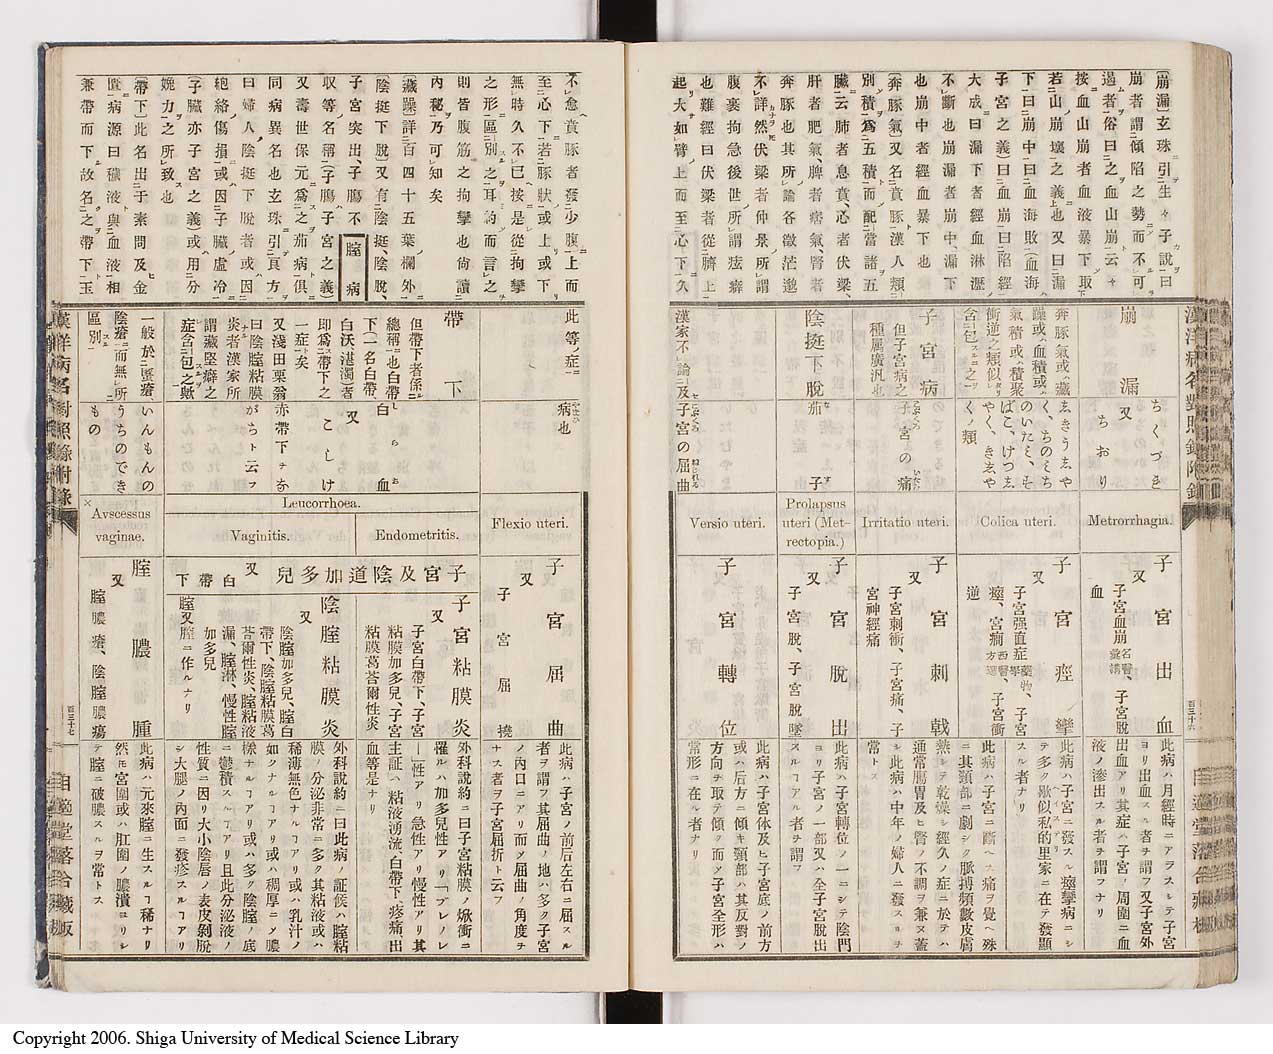 (崩漏)玄珠引生々子說曰
崩者謂傾陷之勢而不可
遏者俗曰之血山崩云々
按血山崩者血液暴下取
若山崩壞之義也又曰漏
下曰崩中曰血海敗(血海
子宮之義)曰血崩曰陷經
大成曰漏下者經血淋瀝
不斷也崩漏者崩中、漏下
也崩中者經血暴下也
(奔豚氣又名賁豚)漢人類
別積爲五積而配當諸五
臟云肺者息賁心者伏梁、
肝者肥氣、脾者痞氣腎者
奔豚也其所論各微茫邈
不詳然伏梁者仲景所謂
腹裏拘急後世所謂痃癖
也難經曰伏梁者從臍上
起大如臂上而至心下久
崩漏
奔豚氣或ハ藏
躁或ハ血積或ハ
氣積或ハ積聚
衝逆之類似
含包
子宮病
但子宮病之
種属廣汎也
陰挺下脫
漢家不論及
ちくづき
又
ちおり
くノ類
子宮の痛
茄子
子宮の屈曲
Metrorrhagia.
Colica uteri.
Irritatio uteri.
Prolapsus
uteri (Met-
rectopia.)
Versio uteri.
子宮出血
又
子宮血崩、子宮脫
血
子宮痙攣
又
子宮强直症
逆
子宮刺戟
又
子宮刺衝、子宮痛、子
宮神經痛
子宮脫出
又
子宮脫、子宮脫墜
子宮轉位
此病ハ月經時ニアラズシテ子宮
ヨリ出血スル者ヲ謂フ又子宮外
出血アリ其症ハ子宮ノ周圍ニ血
液ノ滲出スル者ヲ謂フナリ
此病ハ子宮ニ發スル痙攣病ニシ
テ多ク歇似私的里家ニ在テ發顯
スル者ナリ
此病ハ子宮ニ斷ヘズ痛ヲ覺ヘ殊
ニ其頸部ニ劇シク脈搏頻數皮膚
熱シテ乾燥シ經久ノ症ニ於テハ
通常膓胃及ヒ腎ノ不調ヲ兼ヌ蓋
シ此病ハ中年ノ婦人ニ發スルヲ
常トス
此病ハ子宮轉位ノ一ニシテ陰門
ヨリ子宮ノ一部又ハ全子宮脫出
スルアル者ヲ謂フ
此病ハ子宮体及ヒ子宮底ノ前方
或ハ后方ニ傾キ頸部ハ其反對ノ
方向ヲ取テ傾ク而ソ子宮全形ハ
常形ニ在ル者ナリ
百三十六
不愈賁豚者發少腹上而
至心下若豚狀或上或下
無時久不已按是從拘攣
之形區別之耳約而言之
則皆腹筋之拘攣也尙讀
內秘乃可知矣
腟病
(藏躁)詳百四十五葉欄外
(陰挺下脫)又有陰挺陰脫、
子宮突出、子膓不
収等名稱(子膓子宮之義)
又壽世保元爲之茄病俱
同病異名也玄珠引良方
曰婦人陰挺下脫者或因
絶絡傷損或因子臟虛冷
(子臟亦子宮之義)或用分
娩力之所致也
(帶下)此名出于素問及金
匱病源曰穢液與血液相
兼帶而下故名之帶下玉
此等症
帶下
但帶下者係
總稱也白帶
下(一名白帶、
白沃湛濁)者
即爲帶下之
一症矣
又淺田栗翁
曰陰腟粘膜
炎者漢家所
謂藏堅癖之
症含包之歟
一般於蜃瘡
陰瘡而無所
區別
病也
白血
又
こしけ
赤帶下チ
がちト云フ
いんもんの
うちのでき
もの
Flexio uteri.
Leucorrhoea.
Endometritis.
Vaginitis.
Avscessus
vaginae.
子宮屈曲
又
子宮屈撓
子宮及陰道加多兒 又白帶下
子宮粘膜炎
又
子宮白帶下、子宮
粘膜加多兒、子宮
粘膜葛荅爾性炎
陰腟粘膜炎
又
陰腟加多兒、腟白
帶下、陰腟粘膜葛
荅爾性炎、腟粘液
漏、腟淋、慢性腟
加多兒
腟又膣ニ作ルナリ
腟膿腫
又
腟膿瘡、陰腟膿瘍
此病ハ子宮ノ前后左右ニ屈スル
者ヲ謂フ其屈曲ノ地ハ多ク子宮
ノ內口ニアリ而ソ屈曲ノ角度ヲ
ナス者ヲ子宮屈折ト云フ
外科說約ニ曰子宮粘膜ノ焮衝ニ
罹ルハ加多兒性アリ「ブレノレ
ー」性アリ急性アリ慢性アリ其
主証ハ粘液湧流、白帶下、疼痛、出
血等是ナリ
外科說約ニ曰此病ノ証候ハ腟粘
膜ノ分泌非常ニ多ク其粘液或ハ
稀薄無色ナルアリ或ハ乳汁ノ
如クナルアリ或ハ稠厚ニソ膿
樣ナルアリ或ハ多ク陰腟ノ底
ニ鬱積スルアリ且此分泌液ノ
性質ニ因リ大小陰唇ノ表皮剝脫
シ大腿ノ內面ニ發疹スルアリ
此病ハ元來腟ニ生スル稀ナリ
然モ宮圍或ハ肛圍ノ膿潰ヨリシ
テ腟ニ破膿スルヲ常トス
漢洋病名對照錄附錄
百三十七
自適堂落合藏版
Copyright 2006. Shiga University of Medical Science Library